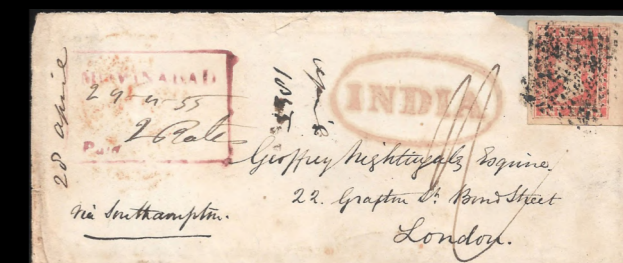 28 april
29-4-55
2 Rate
Paid
april
1855
INDIA
Geoffrey Nightingale Esquire.
22. Grafton St. Bond Street
London.
via Southampton.